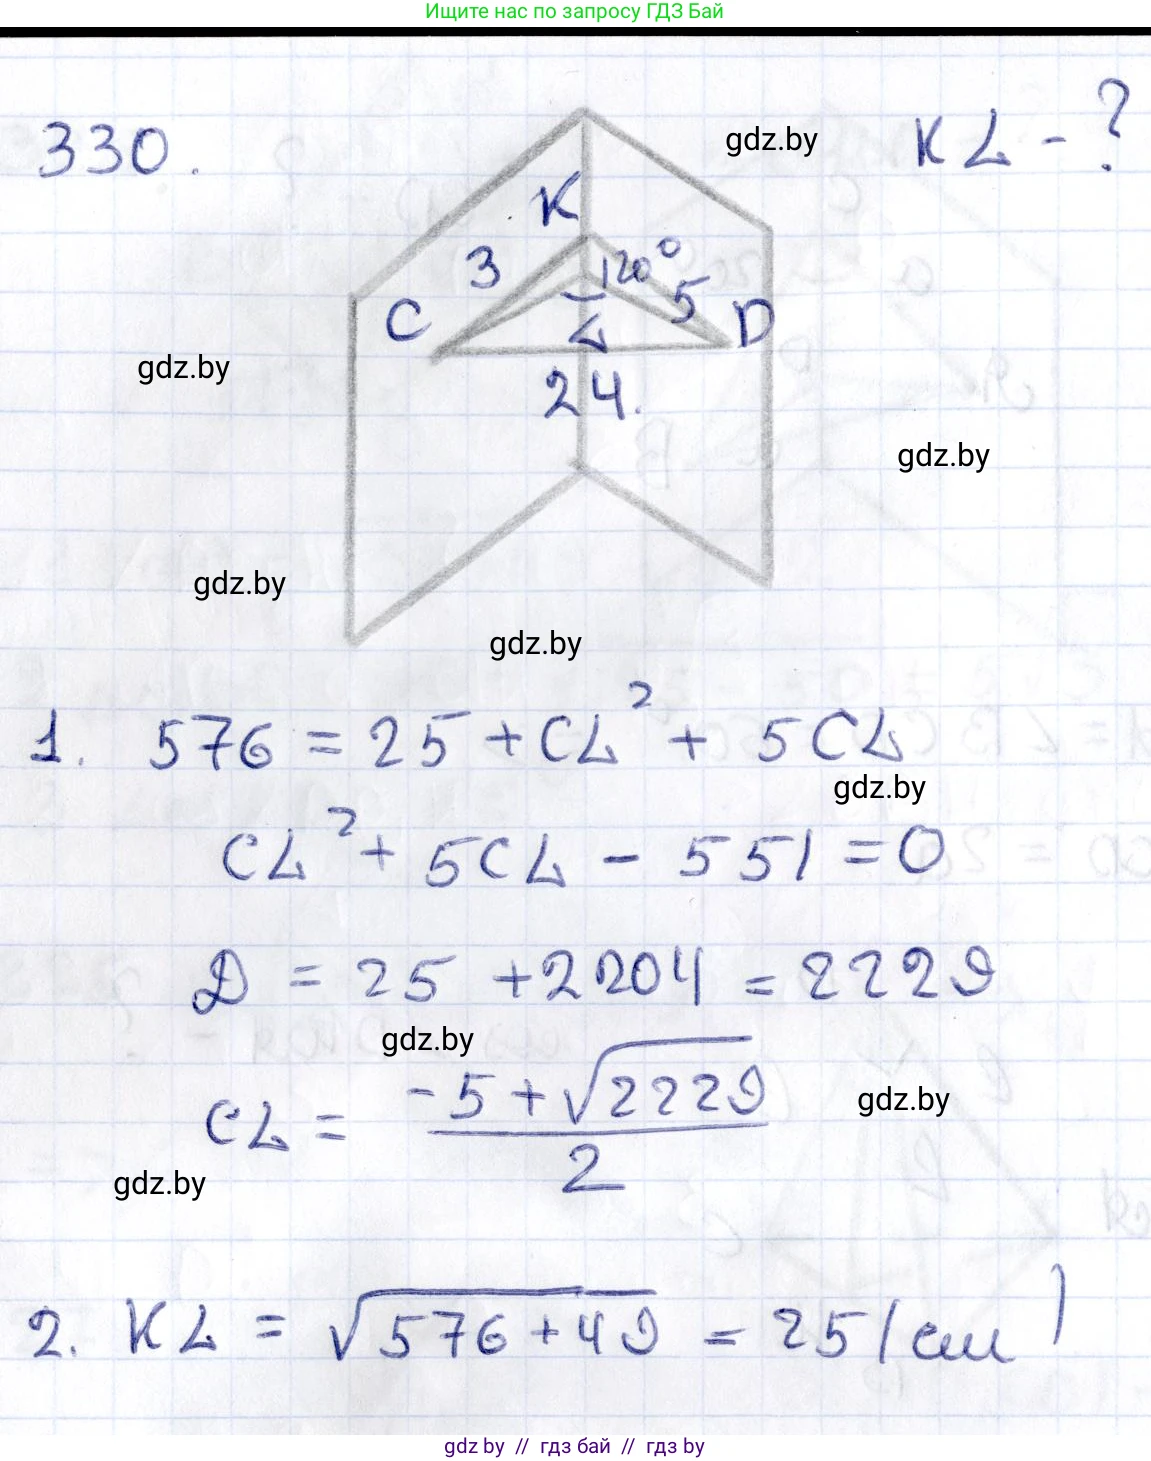 Ищите нас по запросу ГДЗ Бай
330.
gdz.by
KL - ?
K
3
120°
5
C
L
D
24.
gdz.by
gdz.by
gdz.by
gdz.by
1. 576 = 25 + CL² + 5CL
gdz.by
CL² + 5CL - 551 = 0
D = 25 + 2204 = 2229
gdz.by
CL = (-5 + √2229) / 2
gdz.by
gdz.by
2. KL = √576 + 49 = 25 (см)
gdz by // гдз бай // гдз by